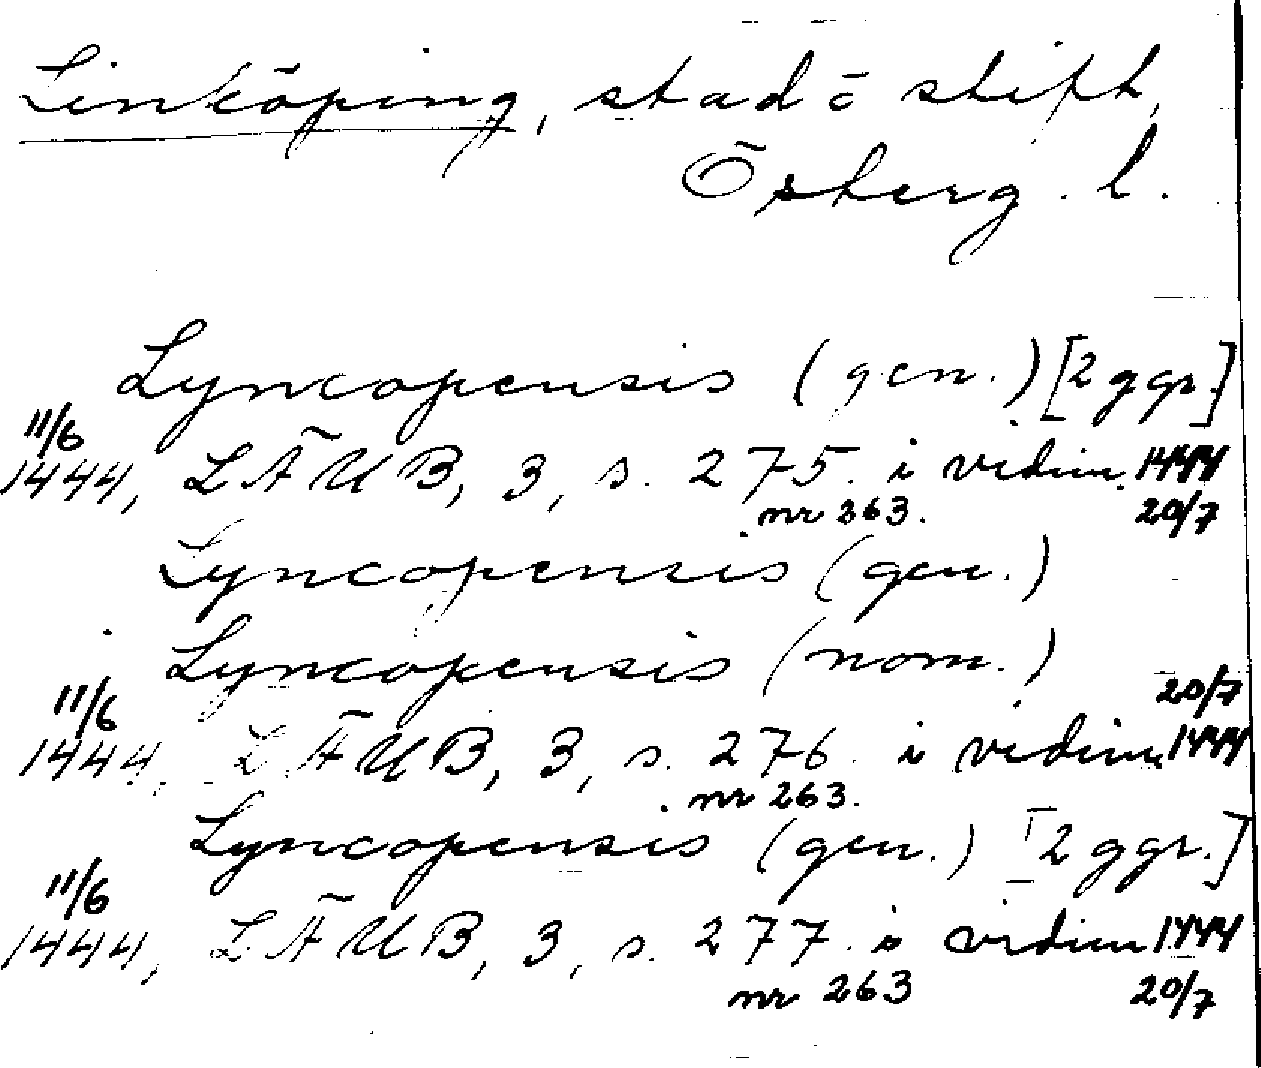 Linköping, stad o stift,
Österg. l.
Lyncopensis (gen.) [2 ggr.]
11/6
1444, LÄUB, 3, s. 275. i vidim. 1444
nr 263. 20/7
Lyncopensis (gen.)
Lyncopensis (nom.)
11/6 20/7
1444, LÄUB, 3, s. 276. i vidim. 1444
nr 263.
Lyncopensis (gen.) [2 ggr.]
11/6
1444, LÄUB, 3, s. 277. i vidim 1444
nr 263 20/7